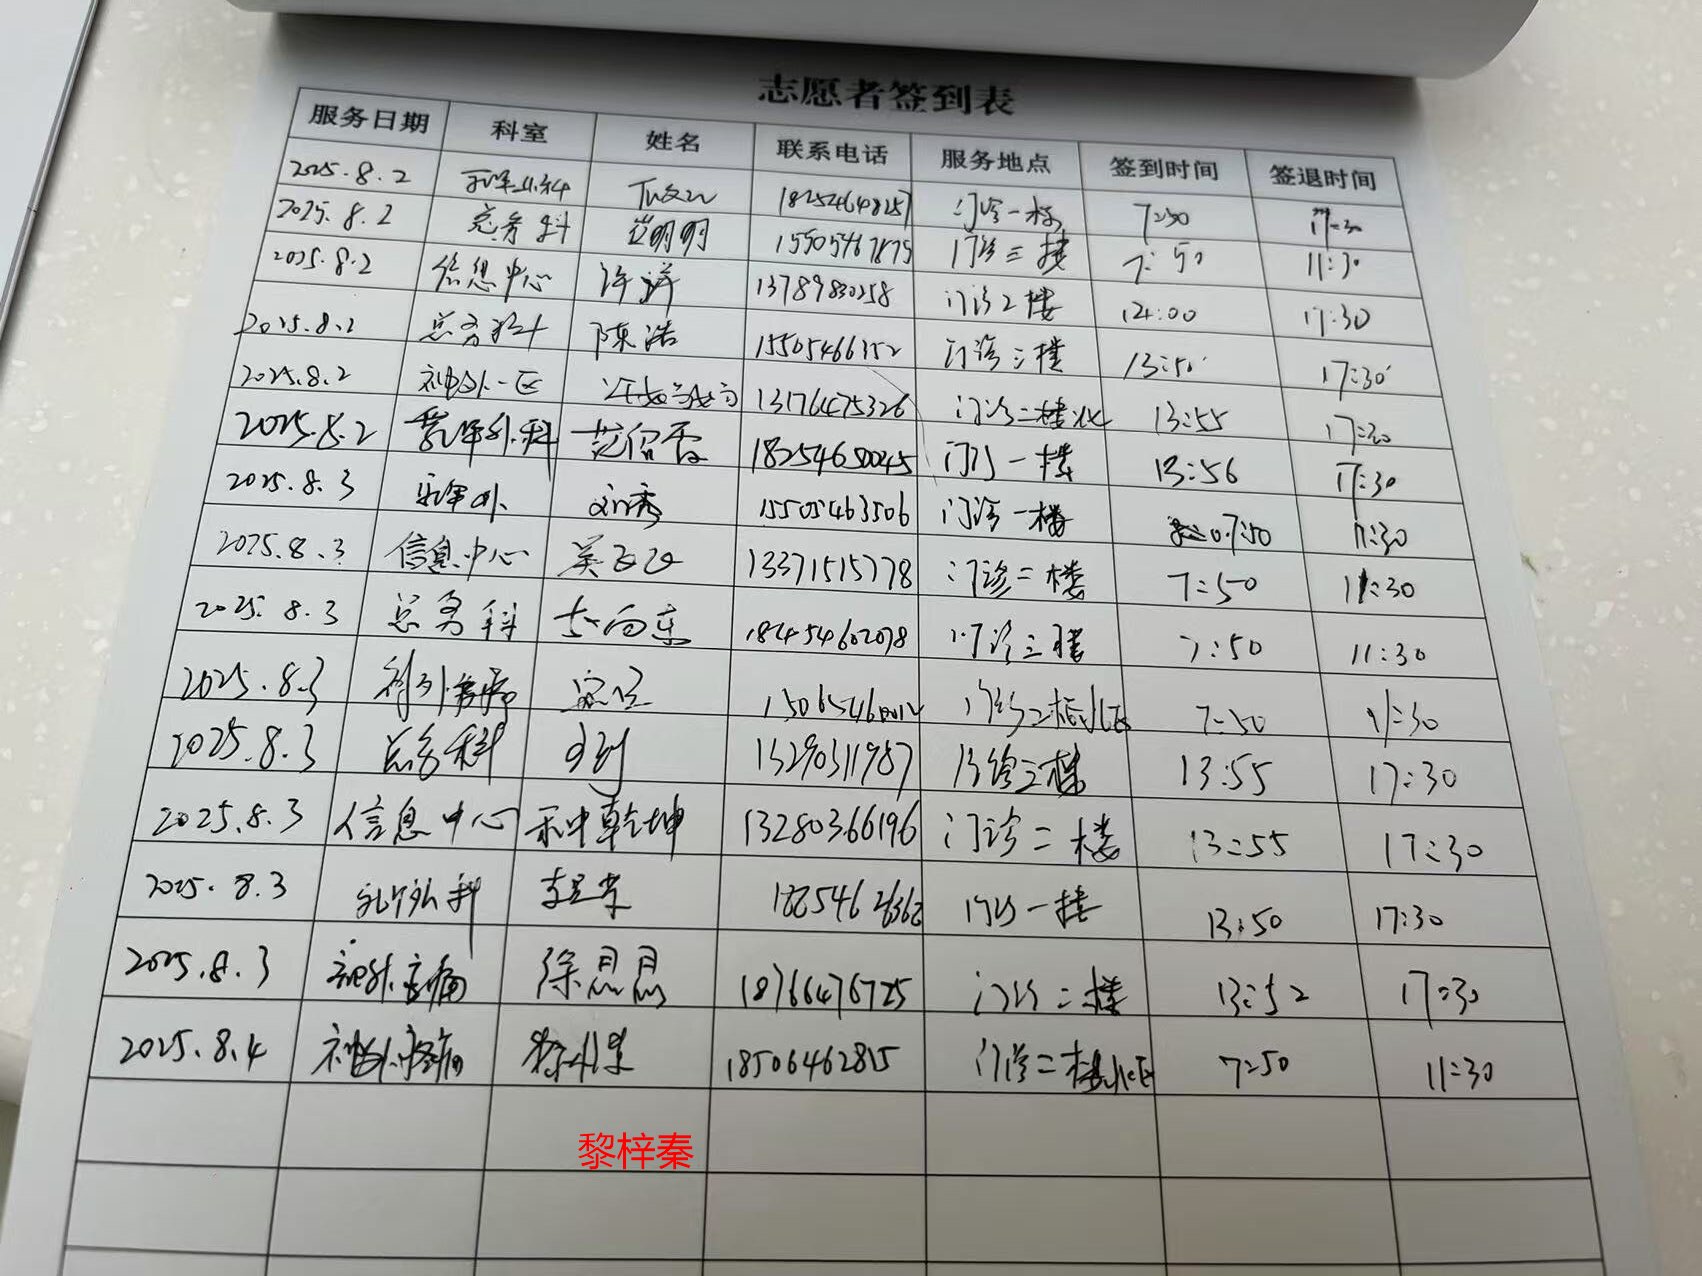 志愿者签到表
服务日期 科室 姓名 联系电话 服务地点 签到时间 签退时间
2025.8.2 18254648257 门诊一楼 7:50 17:30
2025.8.2 总务科 崔明明 15505467875 门诊三楼 7:50 11:30
2025.8.2 信息中心 许洋 13789830258 门诊2楼 14:00 17:30
2025.8.2 总务科 陈浩 15505466352 门诊三楼 13:50 17:30
2025.8.2 神外一区 13176475326 门诊二楼北 13:55 17:30
2025.8.2 乳甲外科 18254650045 门诊一楼 13:56 17:30
2025.8.3 乳甲外 刘秀 15505463506 门诊一楼 7:50 11:30
2025.8.3 信息中心 13371515778 门诊二楼 7:50 11:30
2025.8.3 总务科 18454602078 门诊三楼 7:50 11:30
2025.8.3 门诊二楼北区 7:50 11:30
2025.8.3 总务科 13290311987 门诊三楼 13:55 17:30
2025.8.3 信息中心 种乾坤 13280366196 门诊二楼 13:55 17:30
2025.8.3 门诊一楼 13:50 17:30
2025.8.3 徐思思 18766476725 门诊二楼 13:52 17:30
2025.8.4 18506462815 门诊二楼北区 7:50 11:30
黎梓秦